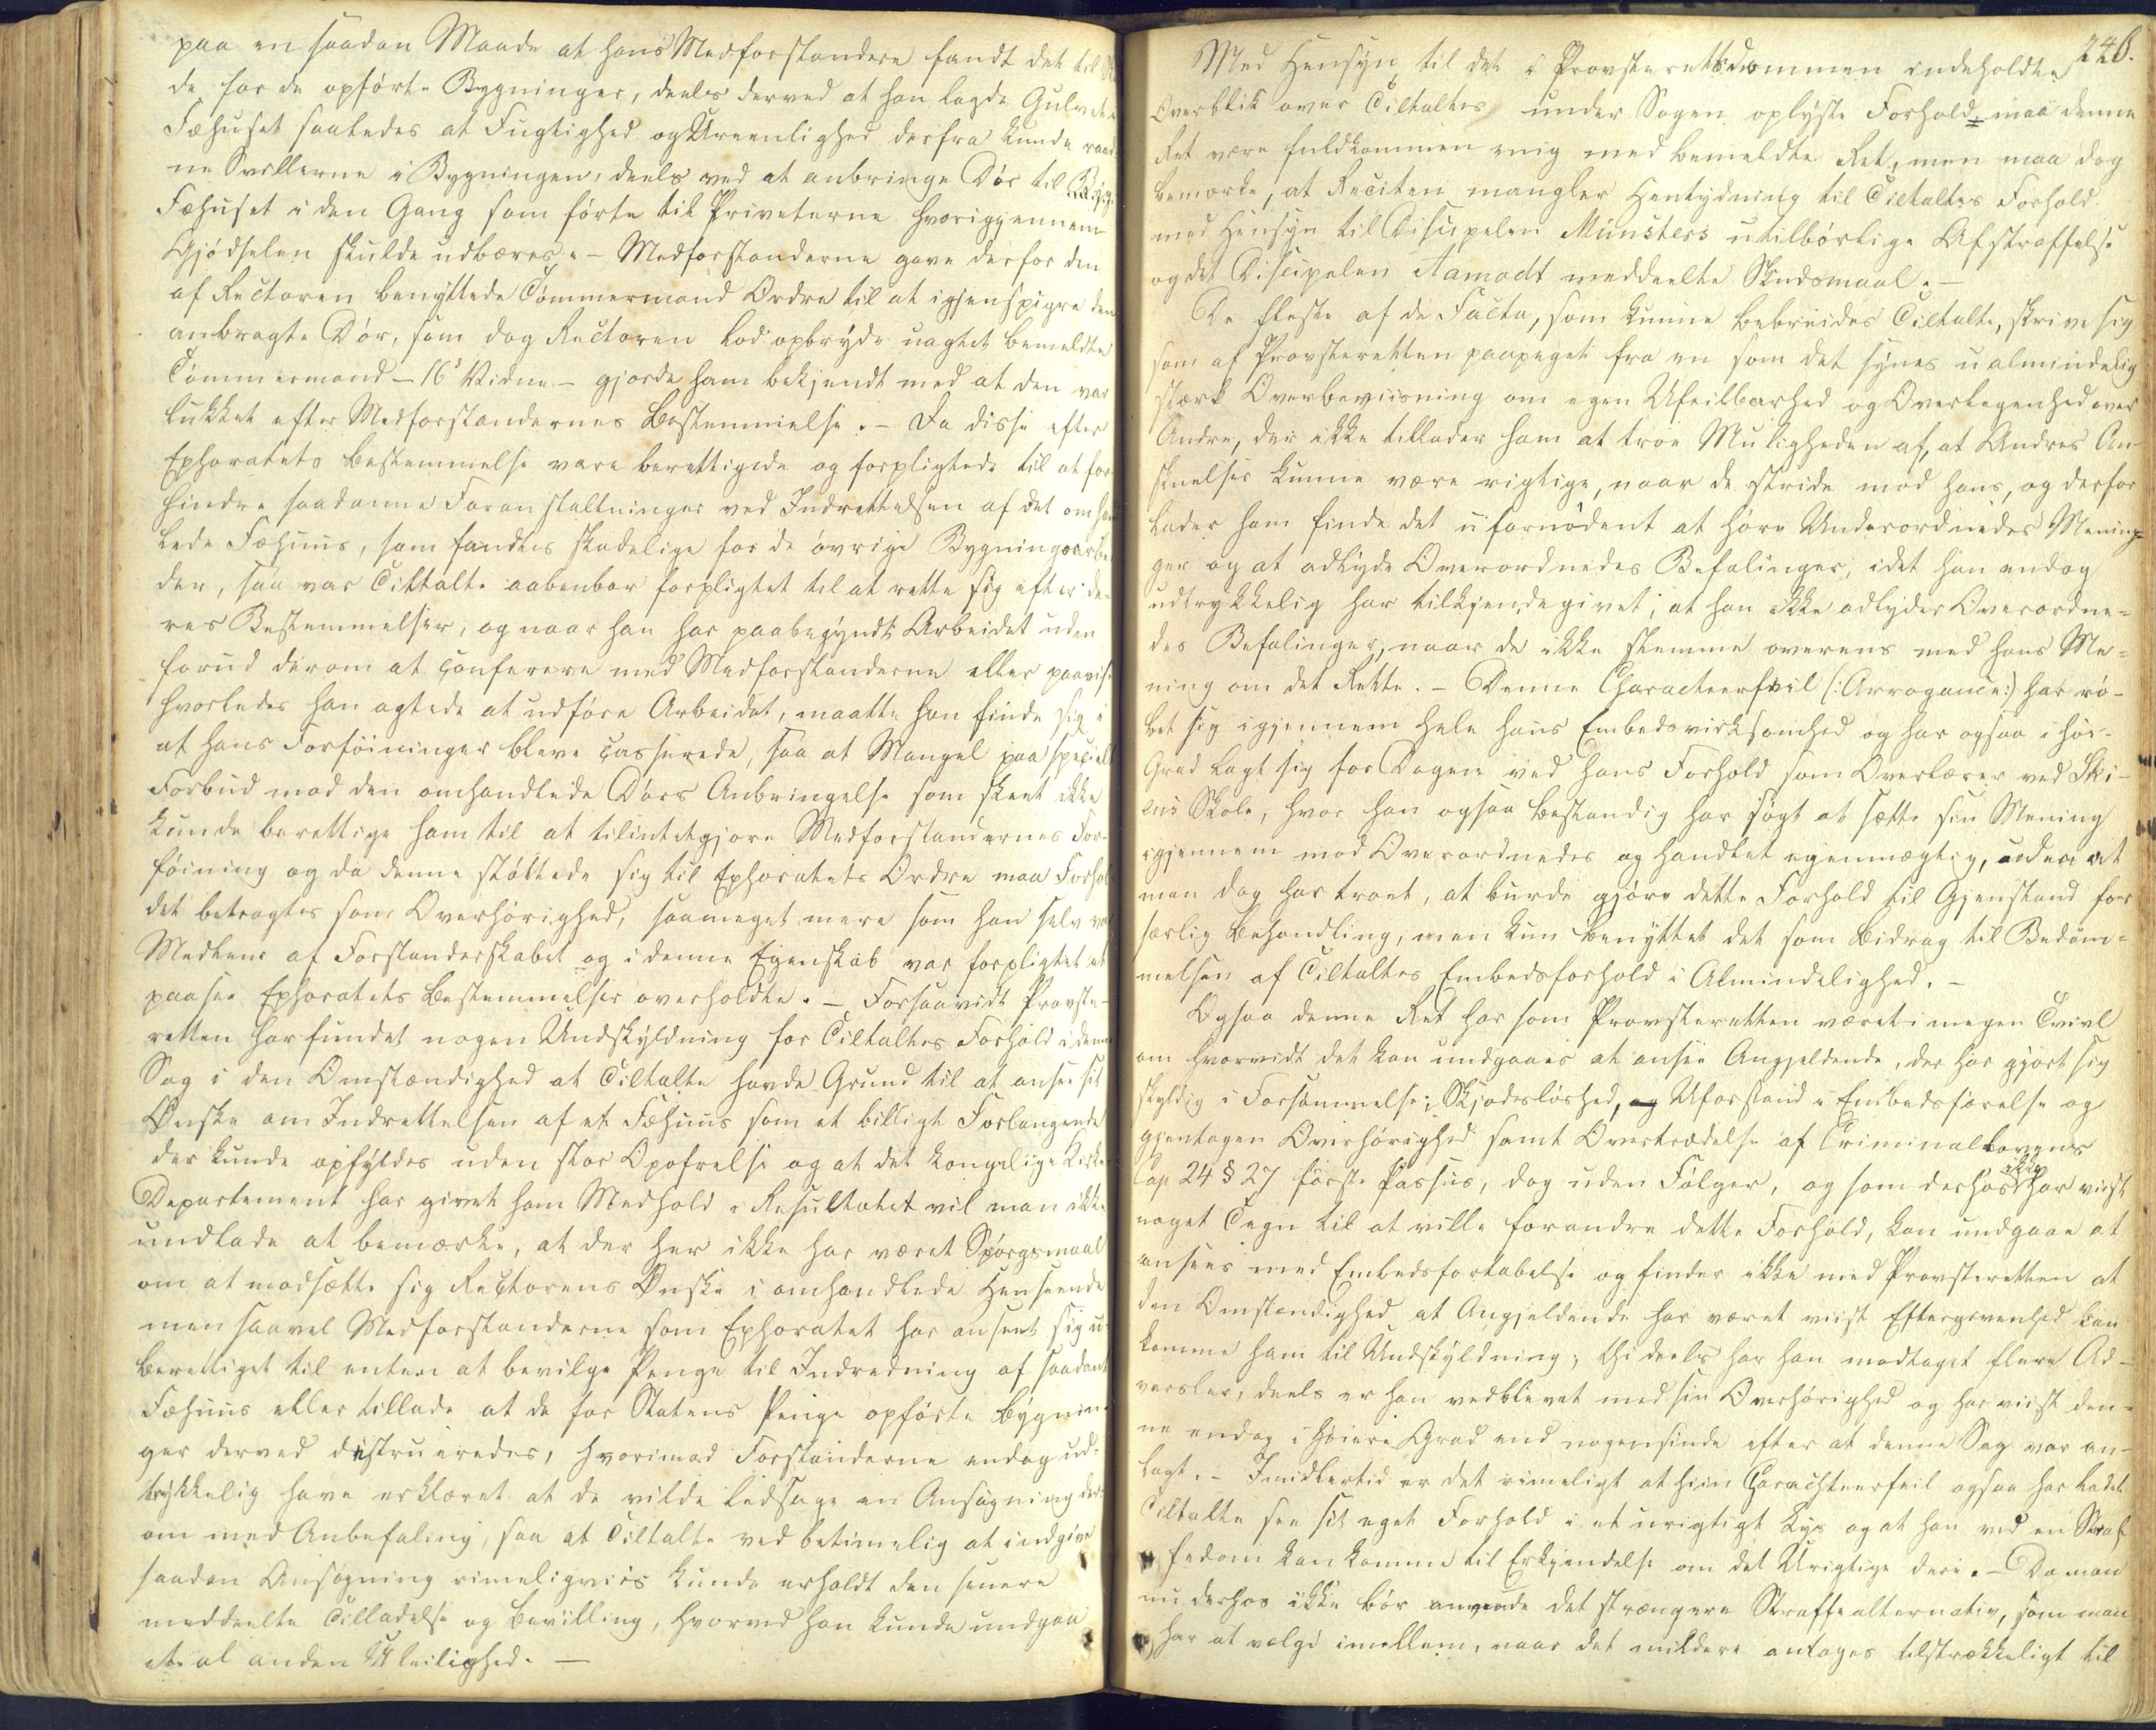 paa en saadan Maade at hans Medforstandere fandt det til
de for de opførte Bygninger, deels derved at han lagde Gulvet i
Fæhuset saaledes at Fugtighed og Ureenlighed derfra kunde
ne Svillerne i Bygningen, deels ved at anbringe Dør til
Fæhuset i den Gang som førte til Priveterne hvorigjennem
Gjødselen skulde udbæres. – Medforstanderne gave derfor den
af Rectoren benyttede Tømmermand Ordre til at igjenspigre den
anbragte Dør, som dog Rectoren lod opbryde uagtet bemeldte
Tømmermand – 16s Vidne – gjorde ham bekjendt med at den var
lukket efter Medforstandernes Bestemmelse. – Da disse efter
Ephoratets Bestemmelse vare berettigede og forpligtede til at for
hindre saadanne Foranstaltninger ved Indrettelsen af det omhand
lede Fæhuus, som fandtes skadelige for de øvrige Bygningsarbei
der, saa var Tiltalte aabenbar forpligtet til at rette sig efter de=
res Bestemmelser, og naar han har paabegyndt Arbeidet uden
forud derom at conferere med Medforstanderne eller paavise
hvorledes han agtede at udføre Arbeidet, maatte han finde sig i
at hans Forføininger bleve casserede, saa at Mangel paa specielt
Forbud mod den omhandlede Dørs Anbringelse som skeet ikke
kunde berettige ham til at tilintetgjøre Medforstandernes For-
føining og da denne støttede sig til Ephoratets Ordre maa Forhol
det betragtes som Overhørighed, saameget mere som han selv var
Medlem af Forstanderskabet og i denne Egenskab var forpligtet at
paasee Ephoratets Bestemmelser overholdte. – Forsaavidt Provste-
retten har fundet nogen Undskyldning for Tiltaltes Forhold i denne
Sag i den Omstændighed at Tiltalte havde Grund til at ansee sit
Ønske om Indrettelsen af et Fæhuus som et billigt Forlangende
der kunde opfyldes uden stor Opofrelse og at det kongelige Kirke
Departement har givet ham Medhold i Resultatet vil man ikke
undlade at bemærke, at der her ikke har været Spørgsmaal
om at modsætte sig Rectorens Ønske i omhandlede Henseende
men saavel Medforstanderne som Ephoratet har anseet sig u-
berettiget til enten at bevilge Penge til Indredning af saadant
Fæhuus eller tillade at de for Statens Penge opførte Bygnin-
ger derved destrueredes, hvorimod Forstanderne endog ud-
trykkelig have erklæret at de vilde ledsage en Ansøgning der-
om med Anbefaling, saa at Tiltalte ved betimelig at indgive
saadan Ansøgning rimeligviis kunde erholdt den senere
meddeelte Tilladelse og Bevilling, hvorved han kunde undgaa
et al anden Uleilighed. –
246.
Med Hensyn til det i Provsteretsdommen indeholdte
Overblik over Tiltaltes under Sagen oplyste Forhold, maa denne
Ret være fuldkommen enig med bemeldte Ret, men maa dog
bemærke, at Reciten mangler Hentydning til Tiltaltes Forhold
med Hensyn til Discipelen Münsters utilbørlige Afstraffelse
og det Discipelen Aamodt meddeelte Skudsmaal. –
De fleste af de Facta, som kunne bebreides Tiltalte, skrive sig
som af Provsteretten paapeget fra en som det synes ualmindelig
stærk Overbeviisning om egen Ufeilbarhed og Overlegenhed over
Andre, der ikke tillader ham at troe Muligheden af, at Andres An-
skuelser kunne være rigtige, naar de stride mod hans, og derfor
lader ham finde det ufornødent at høre Underordnedes Menin=
ger og at adlyde Overordnedes Befalinger, idet han endog
udtrykkelig har tilkjendegivet, at han ikke adlyder Overordne=
des Befalinger, naar de ikke stemme overens med hans Me=
ning om det Rette. – Denne Characteerfeil (: Arrogance :) har rø-
bet sig igjennem hele hans Embedsvirksomhed og har ogsaa i høi
Grad lagt sig for Dagen ved hans Forhold som Overlærer ved Ski-
ens Skole, hvor han ogsaa bestandig har søgt at sætte sin Mening
igjennem mod Overordnedes og handlet egenmægtig, uden at
man dog har troet, at burde gjøre dette Forhold til Gjenstand for
særlig Behandling, men kun benyttet det som Bidrag til Bedøm=
melsen af Tiltaltes Embedsforhold i Almindelighed. –
Ogsaa denne Ret har som Provsteretten været i megen Tvivl
om hvorvidt det kan undgaaes at ansee Angjeldende, der har gjort sig
skyldig i Forsømmelse, Skjødesløshed, og Uforstand i Embedsførelse og
gjentagen Overhørighed samt Overtrædelse af Criminallovens
Cap 24 § 27 første Passus, dog uden Følger, og som derhos ikke har viist
noget Tegn til at ville forandre dette Forhold, kan undgaae at
ansees med Embedsfortabelse og finder ikke med Provsteretten at
den Omstændighed at Angjeldende har været viist Eftergivenhed kan
komme ham til Undskyldning; thi deels har han modtaget flere Ad-
varsler, deels er han vedblevet med sin Overhørighed og har viist den-
ne endog i høiere Grad end nogensinde efter at denne Sag var an-
lagt. – Imidlertid er det rimeligt at hiin Charachteerfeil ogsaa har ladet
Tiltalte see sit eget Forhold i et urigtigt Lys og at han ved en Straf
fedom kan komme til Erkjendelse om det Urigtige deri. – Da man
nu derhos ikke bør anvende det strængere Straffealternativ, som man
har at vælge imellem, naar det mildere antages tilstrækkeligt til